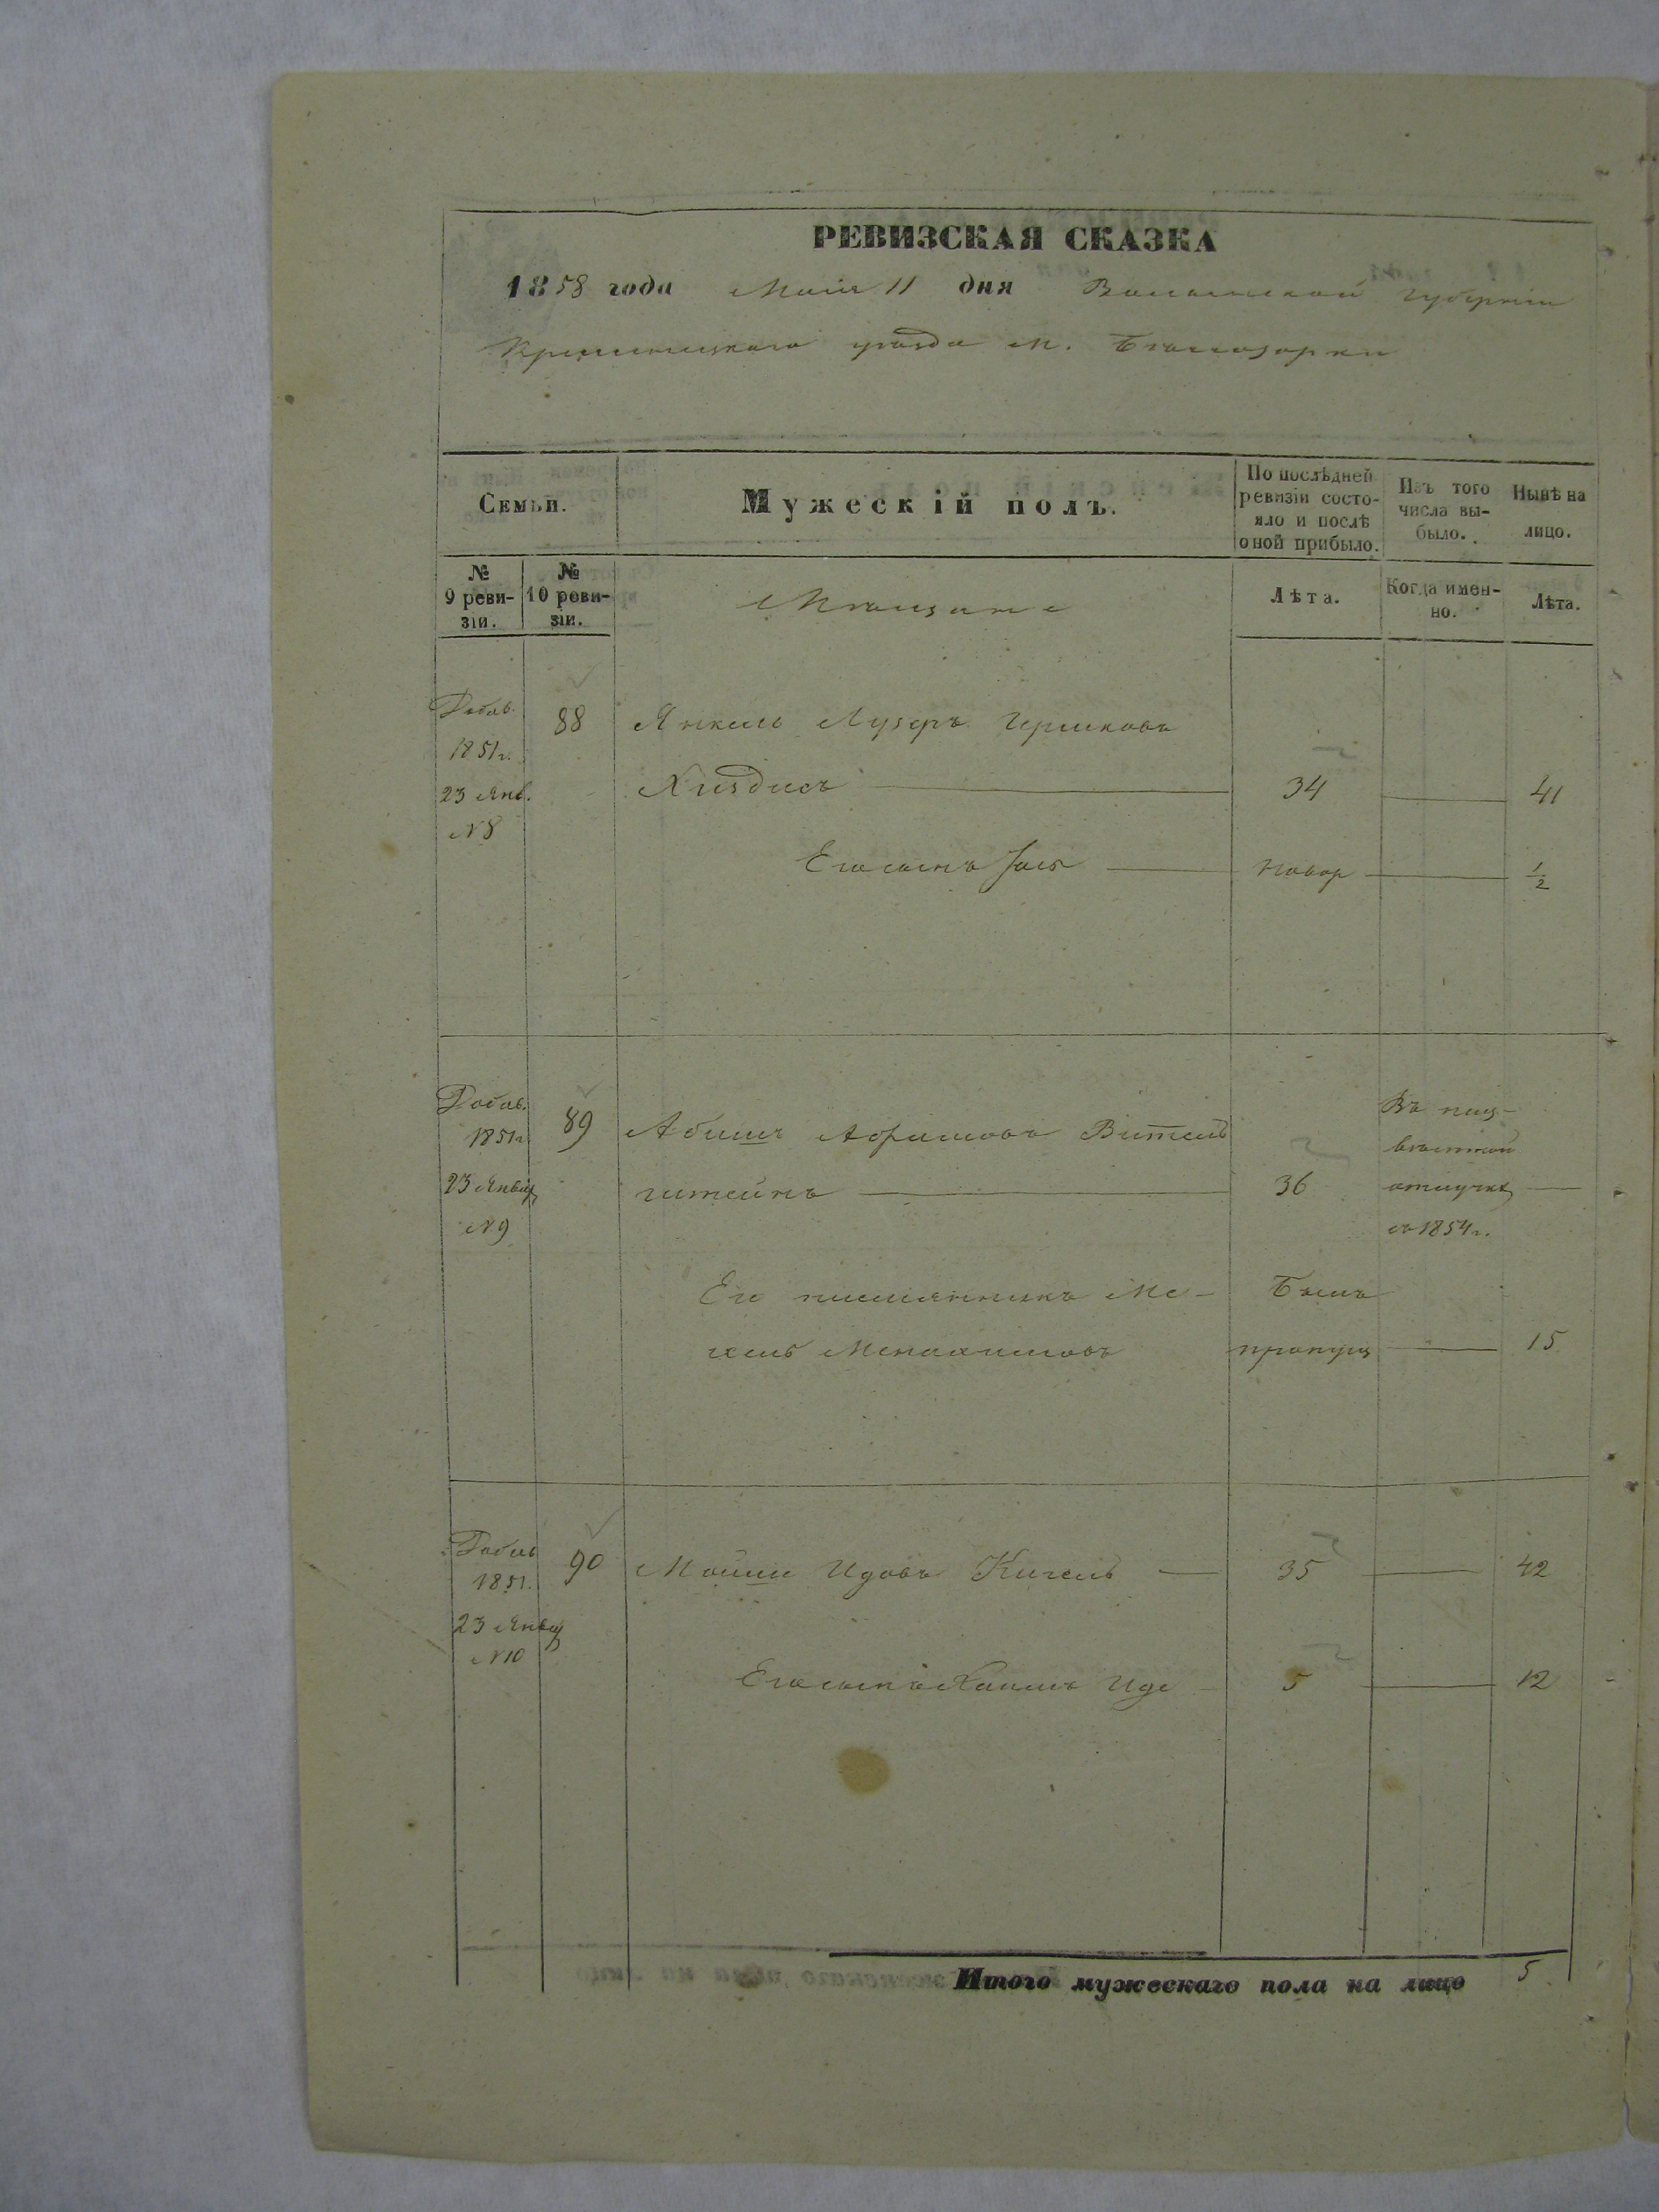 РЕВИЗСКАЯ СКАЗКА
1858 года Маія 11 дня Волынской губерніи
Кременецкаго уѣзда м. Бѣлозорки
Семьи.
Мужескій полъ.
По послѣдней ревизіи состо-
яло и послѣ
оной прибыло.
Изъ того
числа вы-
было.
Нынѣ на
лицо.
№
9 реви-
зіи.
№
10 реви-
зіи.
Мѣщане
Лѣта.
Когда имен-
но.
Лѣта.
Добав.
1851 г.
23 Янв.
№ 8
88
Янкель Лузеръ Гершковъ
34
41
Его сынъ
новор
1/2
Добав.
1851 г
23 Январ
№ 9
89
Абишъ Абрамовъ Витель
штейнъ
36
Въ неиз-
вѣстной
отлучкѣ
съ 1854 г.
Его племянникъ Ме-
хель Менахимовъ
Былъ
пропущ
15
Добав
1851.
23 Январ
№ 10
90
Мошко
35
42
Его сынъ Хаимъ
5
12
Итого мужескаго пола на лицо 5